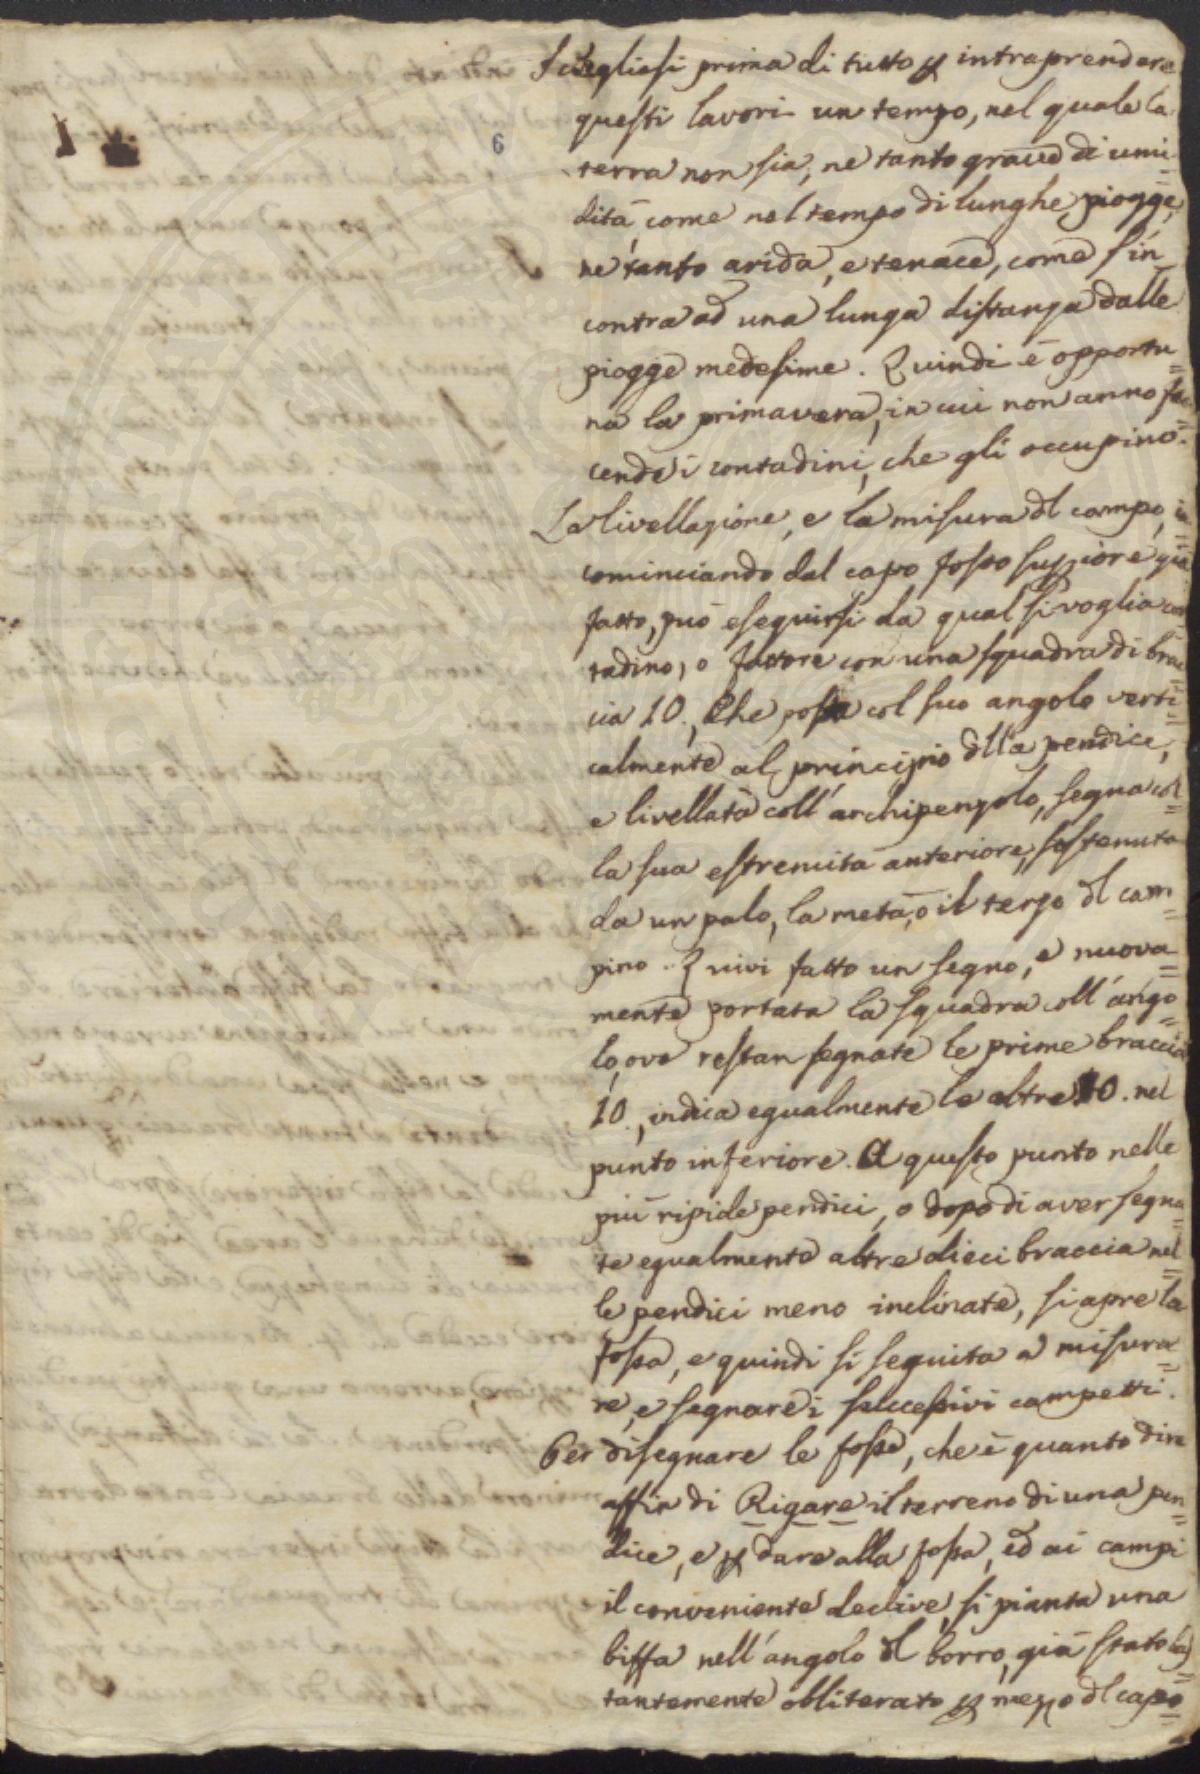 Sciegliesi prima di tutto p intraprendere
questi lavori un tempo, nel quale la
6
terra non sia, ne tanto grave di umi=
dità come nel tempo di lunghe piogge,
ne tanto arida, e tenace, come s'in=
contra ad una lunga distanza dalle
piogge medesime. Quindi è opportu=
na la primavera, in cui non anno fac=
cende i contadini, che gli occupino.
La livellazione, e la misura dl campo, in=
cominciando dal capo fosso supiore già
fatto, può eseguirsi da qual si voglia con=
tadino, o fattore con una squadra di brac=
cia 10., Che posta col suo angolo verti=
calmente al principio dlla pendice,
e livellata coll'archipenzolo, segna col=
la sua estremità anteriore, sostenuta
da un palo, la metà, o il terzo dl cam=
pino. Quivi fatto un segno, e nuova=
mente portata la squadra coll'ango=
lo, ove restan segnate le prime braccia
10., indica egualmente le altre 10. nel
punto inferiore. A questo punto nelle
più ripide pendici, o dopo di aver segna=
te egualmente altre dieci braccia nel=
le pendici meno inclinate, si apre la
fossa, e quindi si seguita a misura=
re, e segnare i successivi campetti.
Per disegnare le fosse, che è quanto dire
affin di Rigare il terreno di una pen=
dice, e p dare alla fossa, ed ai campi
il conveniente declive, si pianta una
biffa nell'angolo dl borro, già stato bas=
tantemente obliterato p mezzo dl capo=